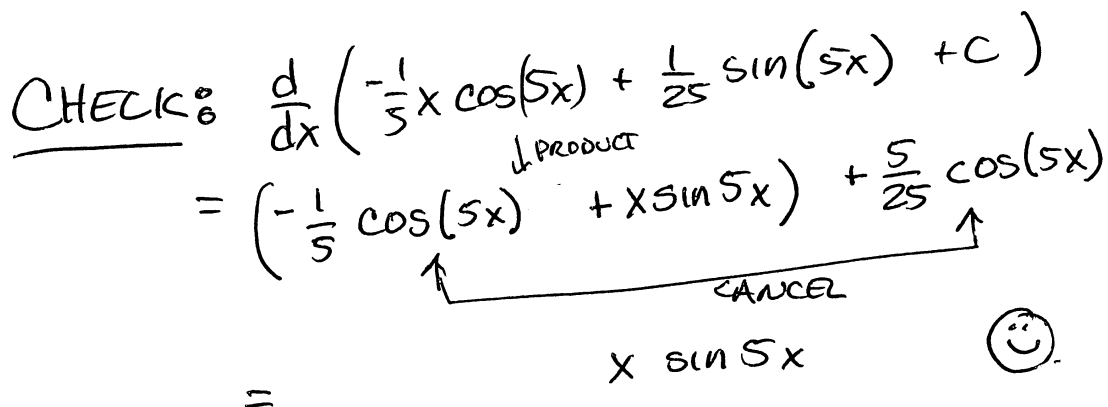 CHECK: d/dx (-1/5 x cos(5x) + 1/25 sin(5x) + C)
↓ PRODUCT
= (-1/5 cos(5x) + x sin 5x) + 5/25 cos(5x)
CANCEL
= x sin 5x